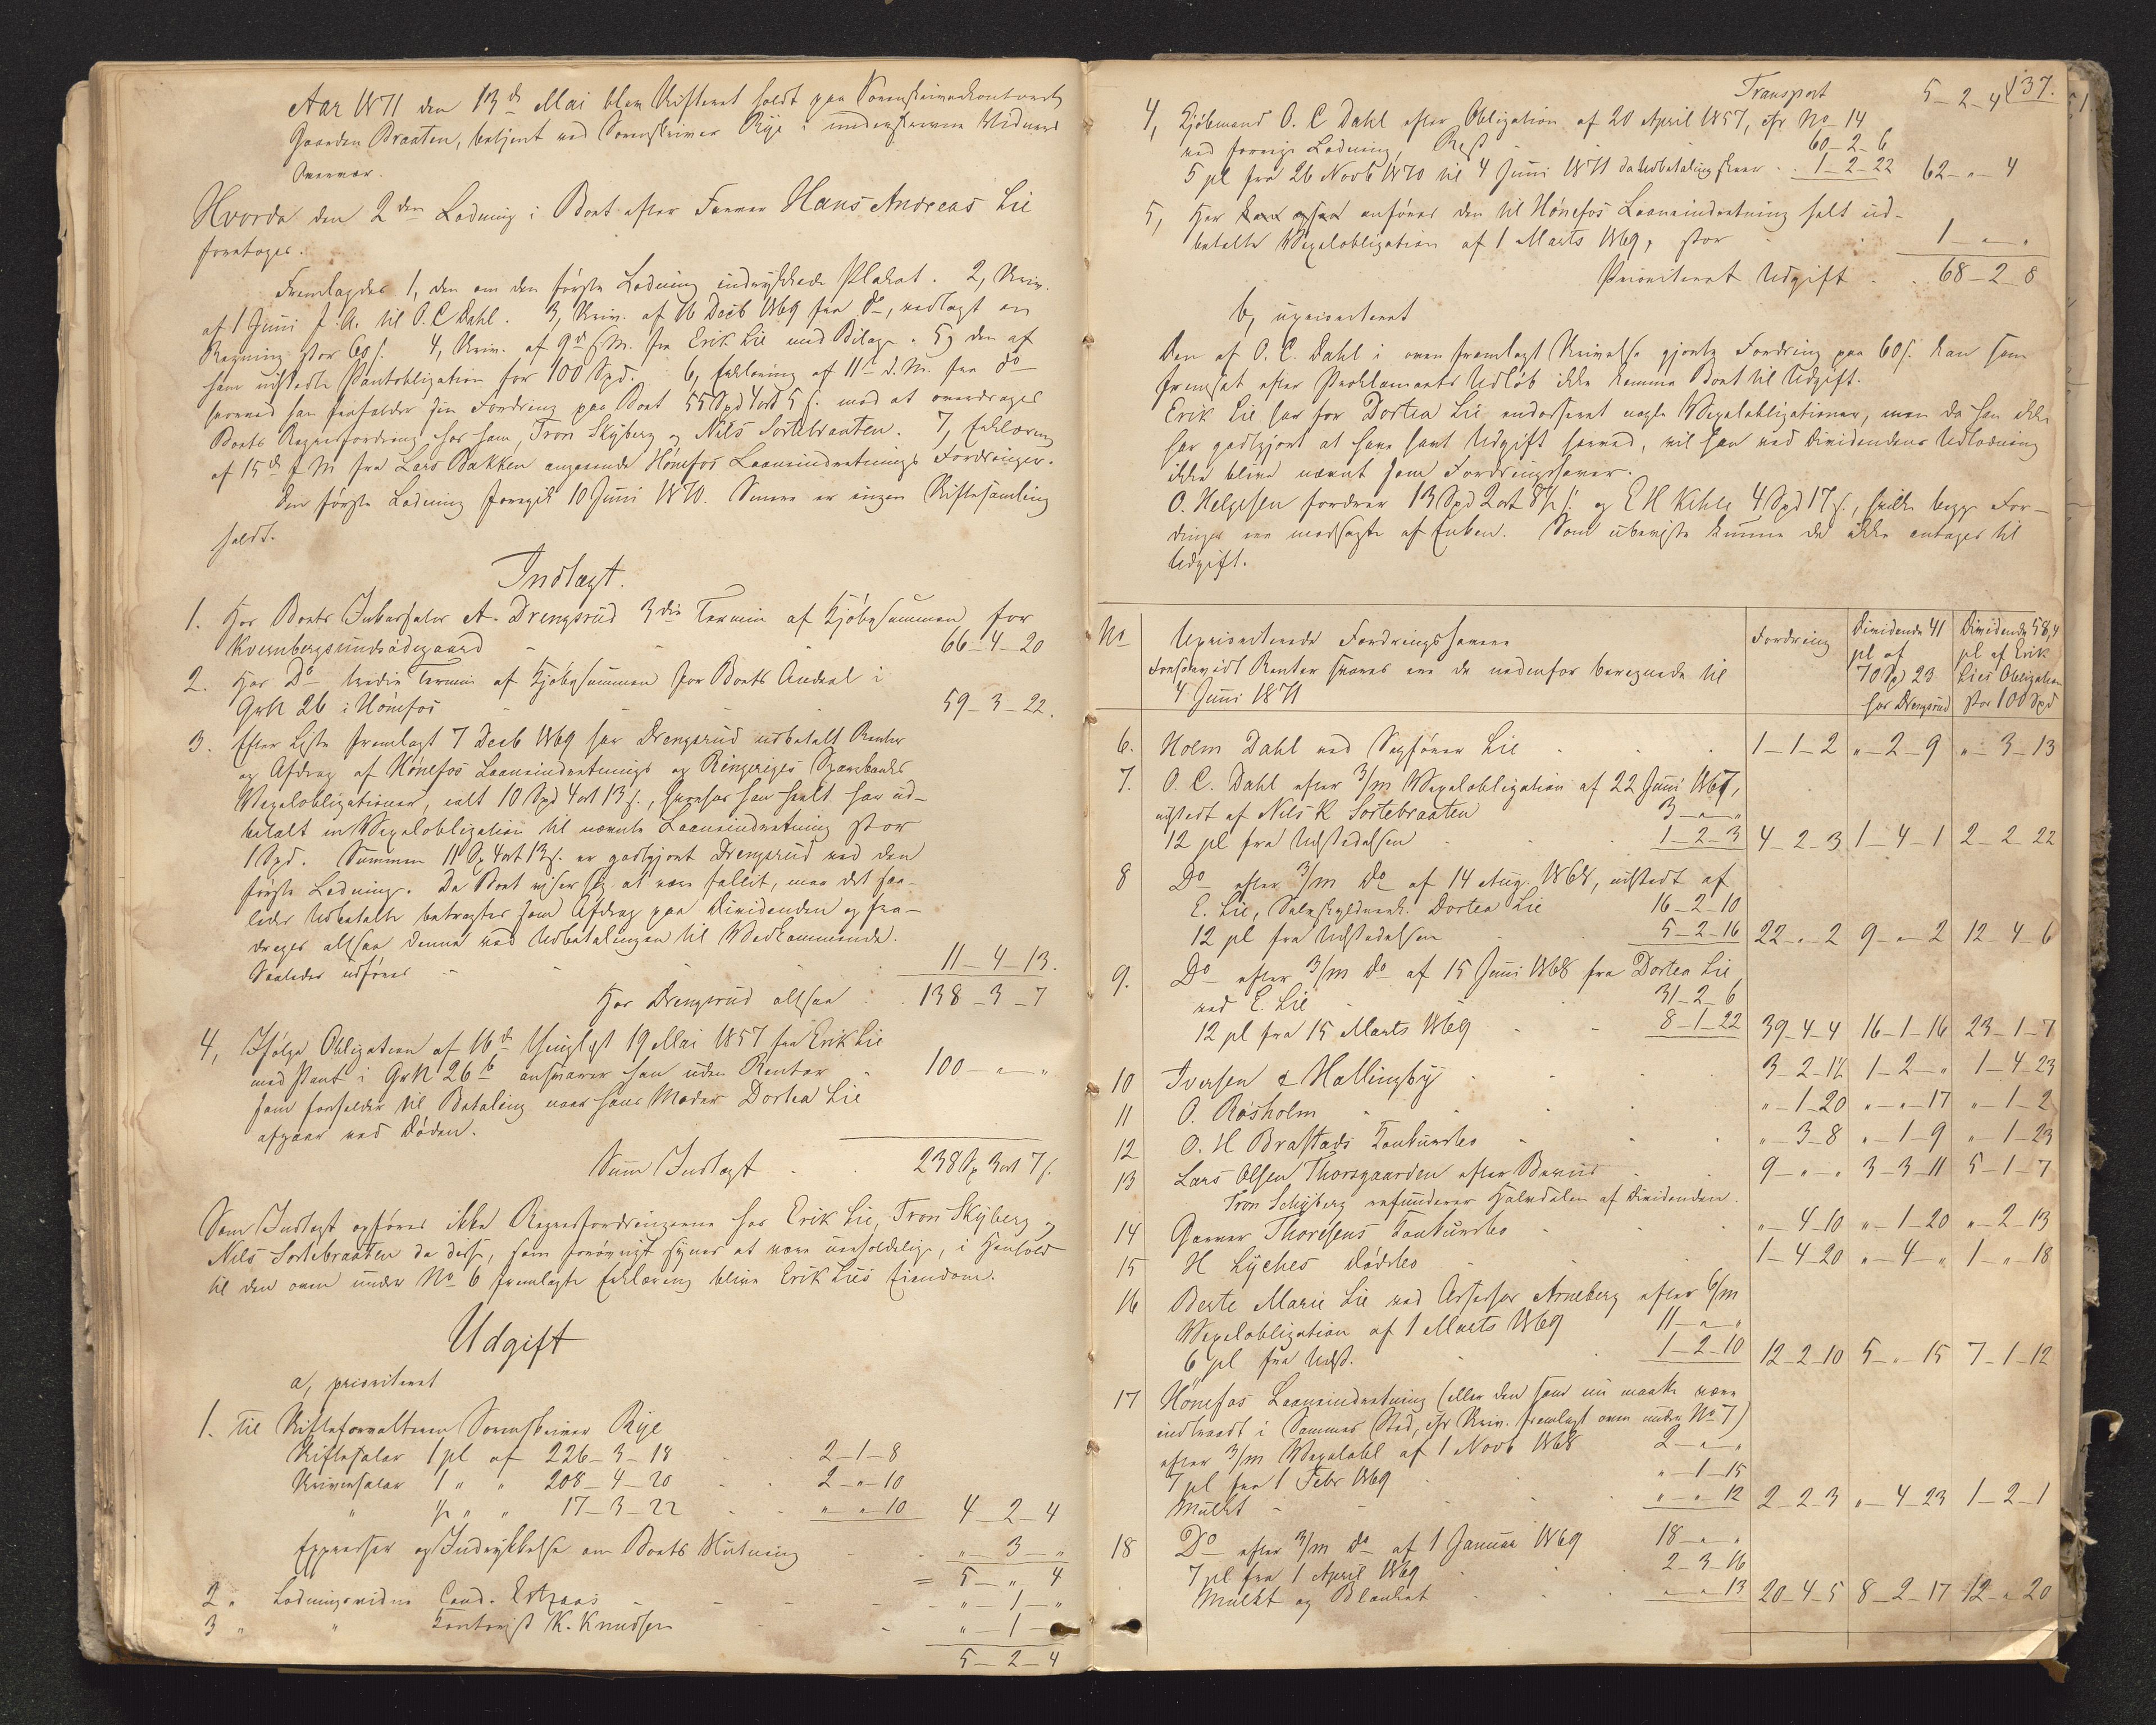 Aar 1871 den 13de Mai blev Skifteret holdt paa Sorenskriverkontoret
Gaarden Braaten, betjent ved Sorenskriver Rye i underskrevne Vidners
Overvær.
Hvorda den 2den Lodning i Boet efter Farver Hans Andreas Lie
foretoges.
Fremlagdes 1, den om den første Lodning indrykkede Plakat. 2, Skriv.
af 1 Juni f. A. til O. C Dahl. 3, Skriv. af 16 Decb 1869 fra Do, vedlagt en
Regning stor 60 s. 4, Skriv. af 9de d. M. fra Erik Lie med Bilage. 5, den af
ham udstedte Pantobligation for 100 Spd. 6, Erklæring af 11te d. M. fra do
hvorved han frafalder sin Fordring paa Boet 55 Spd 4 ort 5 s. mod at overdrages
Boets Regresfordring hos ham, Tron Skyberg og Nils Sortebraaten. 7, Erklæring
af 15de f M fra Lars Bakken angaaende Hønefos Laaneindretnings Fordringer.
Den første Lodning foregik 10 Juni 1870. Senere er ingen Skiftesamling
holdt.
Indtægt.
1. Hos Boets Inkassator A. Drengsrud 3die Termin af Kjøbesummen for
Kvernbergsundsødegaard - - 66-4-20
2. Hos Do tredie Termin af Kjøbesummen for Boets Andeel i
GrN 26 i Hønefos - - 59-3-22.
3. Efter Liste fremlagt 7 Decb 1869 har Drengsrud udbetalt Renter
og Afdrag af Hønefos Laaneindretnings og Ringeriges Sparebanks
Vexelobligationer, ialt 10 Spd 4 ort 13 s., hvorhos han heelt har ud-
betalt en Vexelobligation til nævnte Laaneindretning stor
1 Spd. Summen 11 Sp 4 ort 13 s. er godtgjort Drengsrud ved den
første Lodning. Da Boet viser sig at være fallit, maa det saa-
ledes Udbetalte betragtes som Afdrag paa Dividenden og fra-
drages altsaa denne ved Udbetalingen til Vedkommende.
Saaledes udføres - - 11-4-13.
Hos Drengsrud altsaa . . 138-3-7
4, Ifølge Obligation af 16de thinglyst 19 Mai 1857 fra Erik Lie
med Pant i GrN 26b ansvarer han uden Renter - 100-"-"
som forfalder til Betaling naar hans Moder Dortea Lie
afgaar ved Døden.
Sum Indtægt . . 238 Sp 3 ort 7 s.
Som Indtægt opføres ikke Regresfordringerne hos Erik Lie, Tron Skyberg og
Nils Sortebraaten da disse, som forøvrigt synes at være uerholdelige, i Henhold
til den oven under No 6 fremlagte Erklæring blive Erik Lies Eiendom.
Udgift
a, prioriteret
1. Til Skifteforvalteren Sorenskriver Rye
Skiftesalær 1 pCt af 226-3-18 . . 2-1-8
Skriversalær 1 " " 208-4-20 . . 2-"-10
" ½ " " 17-3-22 . . "-"-10 4-2-4
Expresser og Indrykkelse om Boets Slutning . . "-3-"
= 5-"-4
2. Lodningsvidne Cand. Estzaas - - "-1-"
3 " " Kontorist K. Knudsen - - "-1-
5-2-4
137.
Transport 5-2-4
4, Kjøbmand O. C Dahl efter Obligation af 20 April 1857, cfr No 14
ved forrige Lodning, Rest 60-2-6
5 pCt fra 26 Novb 1870 til 4 Juni 1871 da Udbetaling skeer . . 1-2-22 62-"-4
5, Her anføres den til Hønefos Laaneindretning helt ud-
betalte Vexelobligation af 1 Marts 1869, stor . . 1-"-"
Prioriteret Udgift . . 68-2-8
b, uprioriteret
Den af O. C. Dahl i oven fremlagt Skrivelse gjorte Fordring paa 60 s. kan som
fremsat efter Proklamaets Udløb ikke komme Boet til Udgift.
Erik Lie har for Dortea Lie endosseret nogle Vexelobligationer, men da han ikke
har godtgjort at have havt Udgift herved, vil han ved Dividendens Udlodning
ikke blive nævnt som Fordringshaver.
O. Helgesen fordrer 13 Spd 2 ort 8½ s. og E H Kihle 4 Spd 17 s., hvilke begge For-
dringer ere modsagte af Enken. Som ubeviste kunne de ikke antages til
Udgift.
No Uprioriterede Fordringshavere Fordring Dividende 41 Dividende 58,4
Forsaavidt Renter svares ere de nedenfor beregnede til pCt af pCt af Erik
4 Juni 1871 70 Spd 23 Lies Obligation
hos Drengsrud stor 100 Spd
6. Holm Dahl ved Sagfører Lie . . 1-1-2 "-2-9 "-3-13
7. O. C. Dahl efter 3/m Vexelobligation af 22 Juni 1867,
udstedt af Nils K Sortebraaten 3-"-"
12 pCt fra Udstedelsen . . 1-2-3 4-2-3 1-4-1 2-2-22
8 Do efter 3/m do af 14 Aug. 1868, udstedt af
E. Lie, Selvskyldnersk. Dortea Lie 16-2-10
12 pCt fra Udstedelsen . 5-2-16 22-"-2 9-"-2 12-4-6
9. Do efter 3/m do af 15 Juni 1868 fra Dortea Lie
ved E. Lie . . 31-2-6
12 pCt fra 15 Marts 1869 . . 8-1-22 39-4-4 16-1-16 23-1-7
10 Iversen & Hallingby . . 3-2-14 1-2-" 1-4-23
11 O. Røsholm . . "-1-20 "-"-17 "-1-2
12 O. H Brastads Konkursbo . . "-3-8 "-1-9 "-1-23
13 Lars Olsen Thorsgaarden efter Beviis . . 9-"-" 3-3-11 5-1-7
Tron Schyberg refunderer Halvdelen af Dividenden.
14 Garver Thoresens Konkursbo . . "-4-10 "-1-20 "-2-13
15 H Lyches Dødsbo . . 1-4-20 "-4-" 1-"-18
16 Berte Marie Lie ved Assessor Arneberg efter 6/m
Vexelobligation af 1 Marts 1869 11-"-"
6 pCt fra Udst. . . 1-2-10 12-2-10 5-"-15 7-1-12
17 Hönefos Laaneindretning (eller den som nu maatte være
indtraadt i Sammes Sted, cfr Skriv. fremlagt oven under No 7)
efter 3/m Vexelobl af 1 Novb 1868 2-"-"
7 pCt fra 1 Febr 1869 . "-1-15
Mulkt - . "-"-12 2-2-3 "-4-23 1-2-1
18 Do efter 3/m do af 1 Januar 1869 18-"-"
7 pCt fra 1 April 1869 . 2-3-16
Mulkt og Blanket . "-"-13 20-4-5 8-2-17 12-"-20